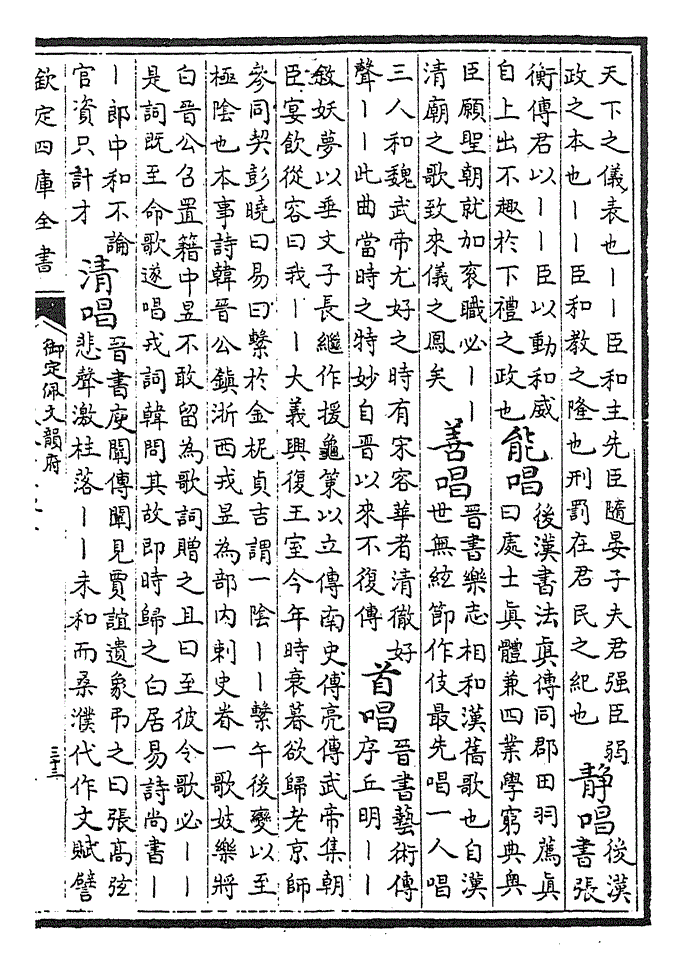 天下之儀表也丨丨臣和主先臣隨晏子夫君强臣弱
政之本也丨丨臣和教之隆也刑罰在君民之紀也
靜唱
後漢
書張
衡傳君以丨丨臣以動和威
自上出不趣於下禮之政也
能唱
後漢書法眞傳同郡田羽薦眞
曰處士眞體兼四業學窮典奥
臣願聖朝就加衮職必丨丨
清廟之歌致來儀之鳳矣
善唱
晉書樂志相和漢舊歌也自漢
世無絃節作伎最先唱一人唱
三人和魏武帝尤好之時有宋容華者清徹好
聲丨丨此曲當時之特妙自晉以來不復傳
首唱
晉書藝術傳
序丘明丨丨
敘妖夢以垂文子長繼作援龜策以立傳南史傅亮傳武帝集朝
臣宴飲從容曰我丨丨大義興復王室今年時衰暮欲歸老京師
參同契彭曉曰易曰繫於金柅貞吉謂一陰丨丨繫午後變以至
極陰也本事詩韓晉公鎮浙西戎昱為部内刺史眷一歌妓樂將
白晉公召置籍中昱不敢留為歌詞贈之且曰至彼令歌必丨丨
是詞既至命歌遂唱戎詞韓問其故即時歸之白居易詩尚書丨
丨郎中和不論
官資只計才
清唱
晉書庾闡傳闡見賈誼遺象弔之曰張高弦
悲聲激柱落丨丨未和而桑濮代作文賦譬
欽定四庫全書
御定佩文韻府
三十三